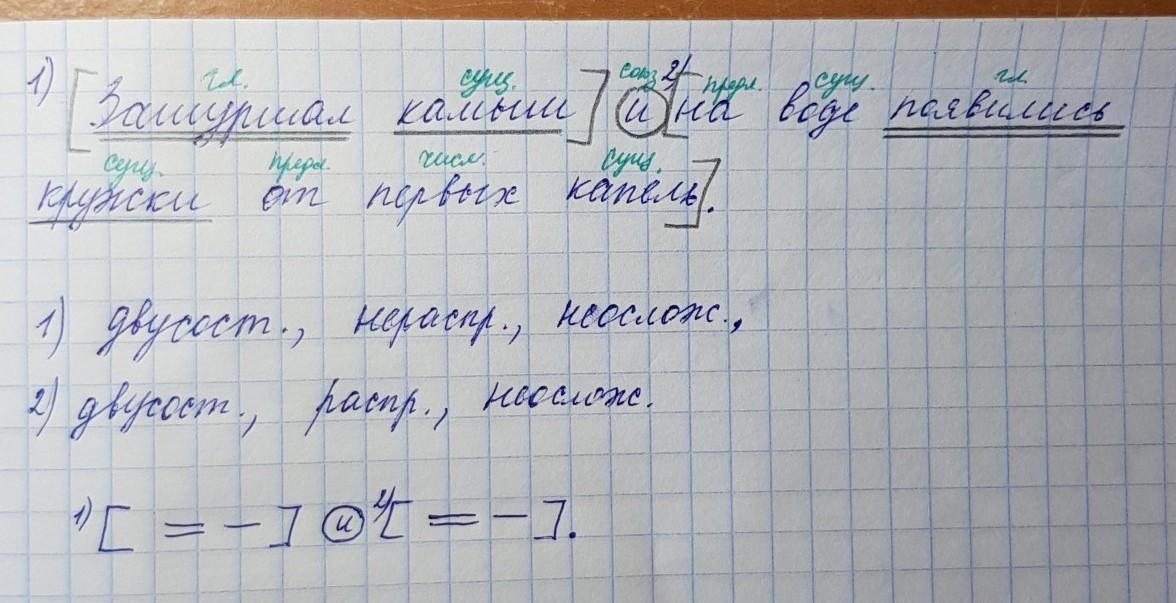 гл. сущ. союз предл. сущ. гл.
1) [Зашуршал камыш] и 2) [на воде появились
сущ. предл. числ. сущ.
кружки от первых капель].
1) двусост., нераспр., неослож.,
2) двусост., распр., неослож.
1) [ = – ] и 2) [ = – ].